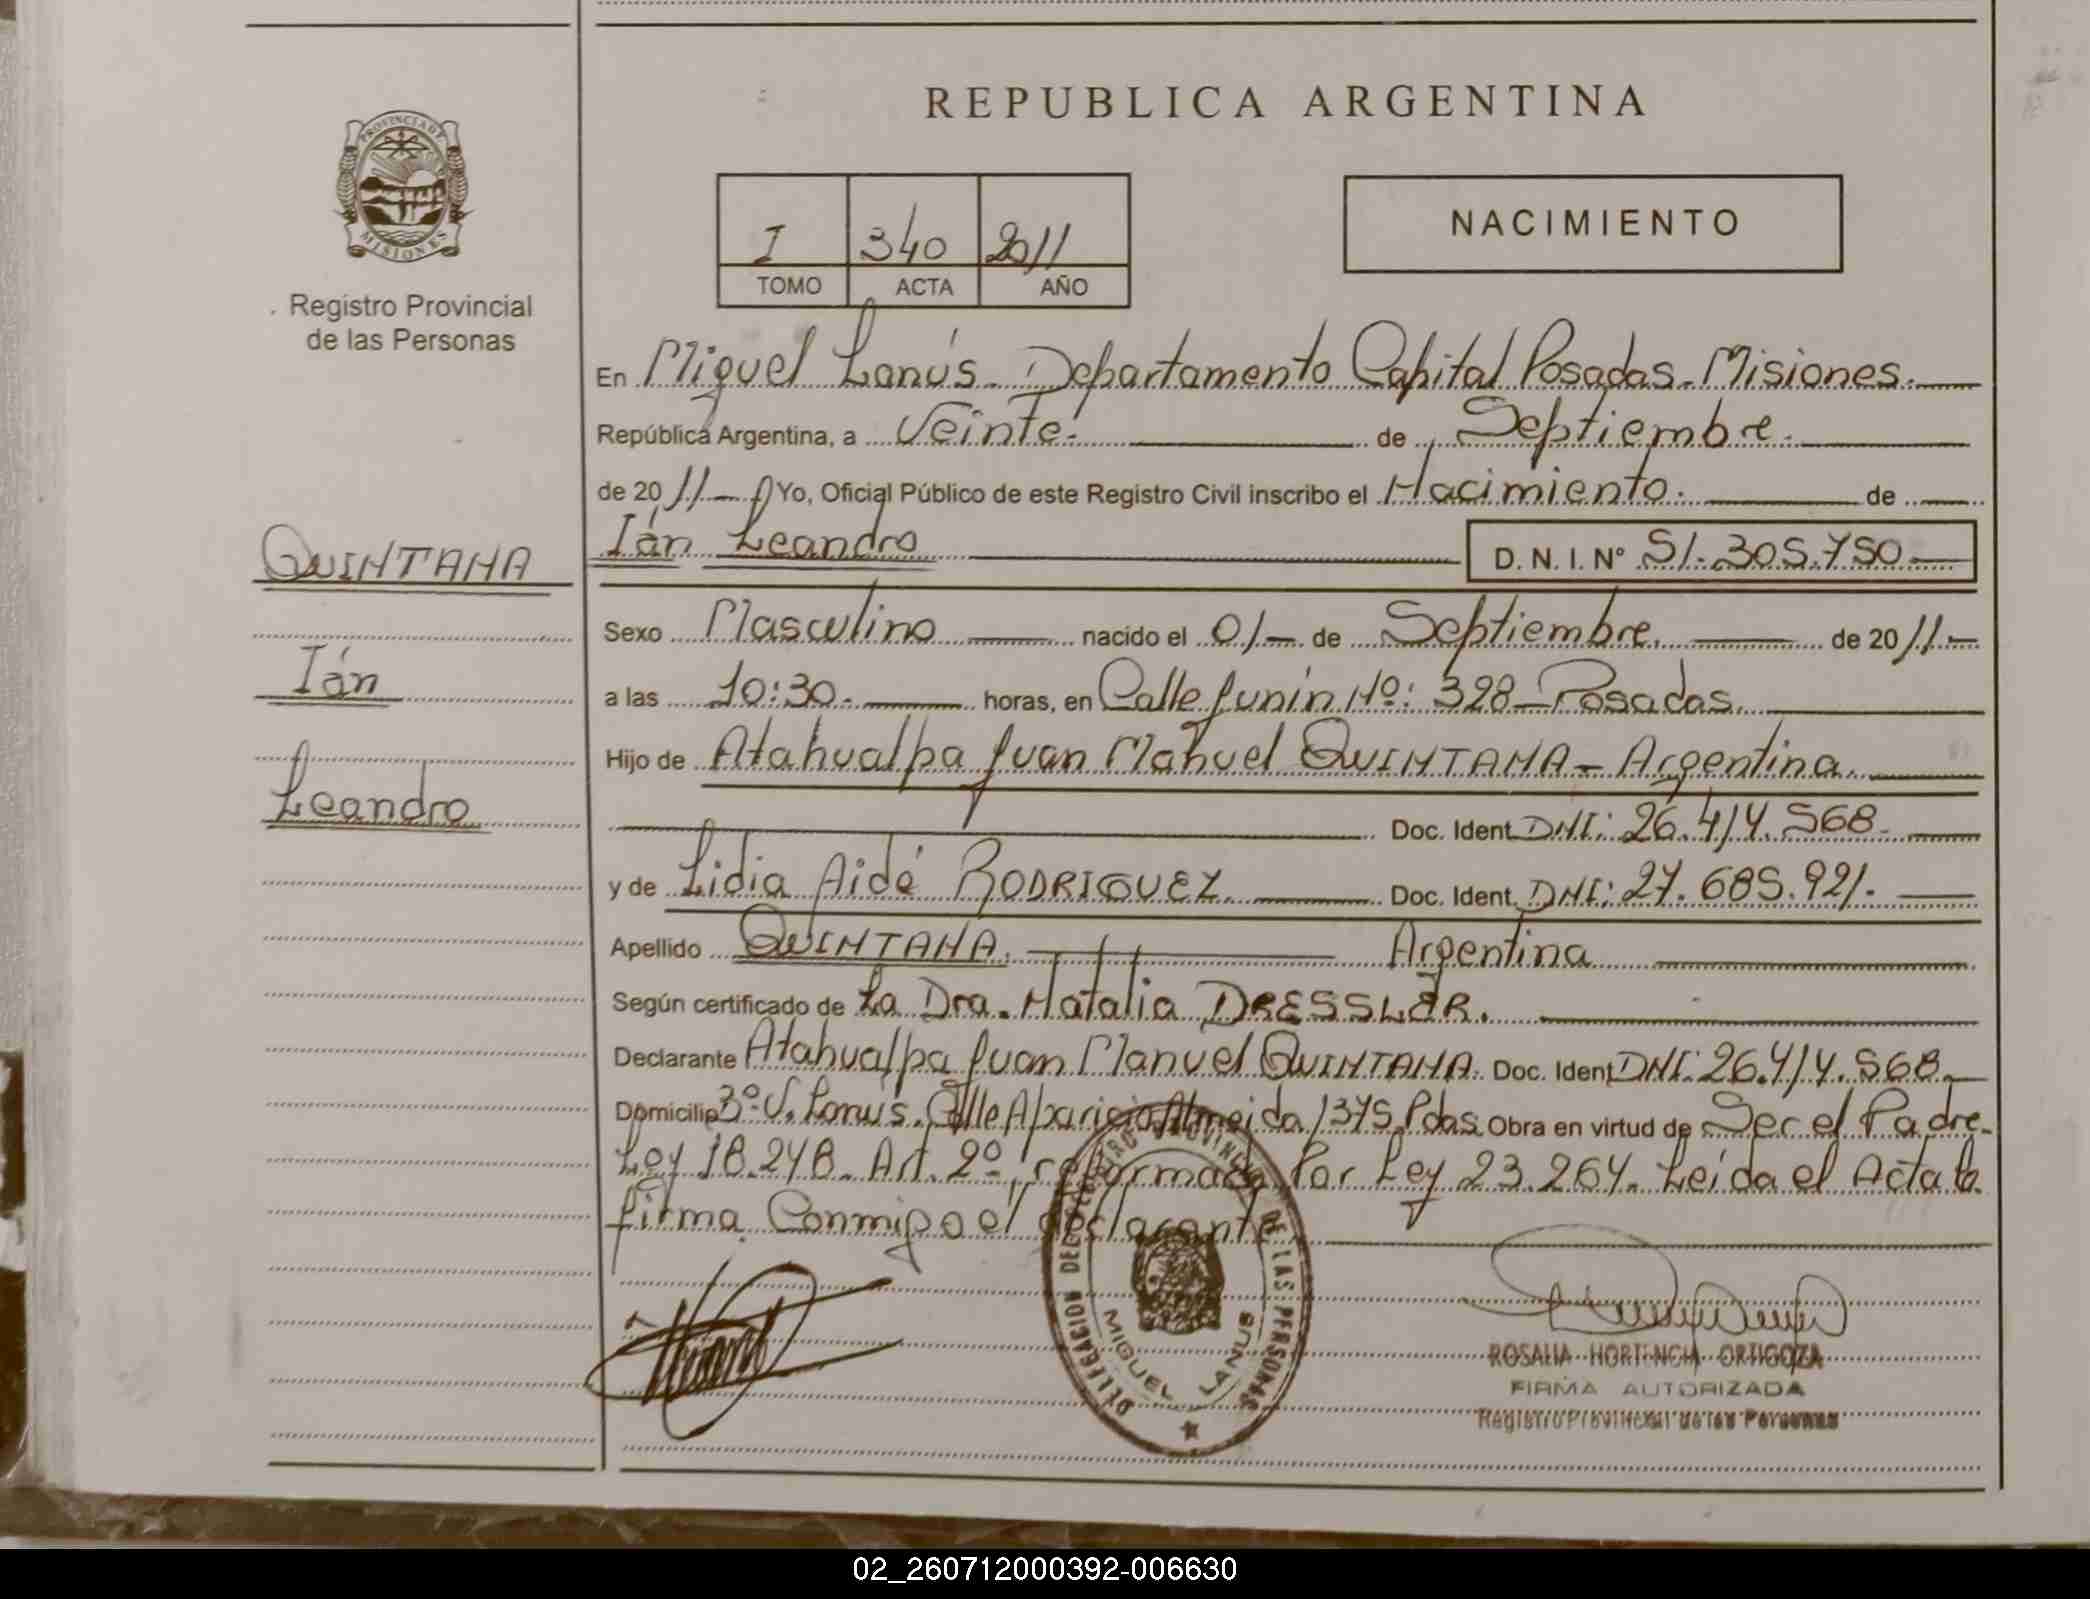 REPUBLICA ARGENTINA
PROVINCIA DE
MISIONES
Registro Provincial
de las Personas
I 340 2011
TOMO ACTA AÑO
NACIMIENTO
En Miguel Lanús - Departamento Capital Posadas - Misiones.
República Argentina, a Veinte. de Septiembre.
de 2011 - Yo, Oficial Público de este Registro Civil inscribo el Nacimiento. de
Ián Leandro D. N. I. Nº 51.305.750
QUINTANA
Ián
Leandro
Sexo Masculino nacido el 01 - de Septiembre. de 2011 -
a las 10:30. horas, en Calle Junín Nº: 328 - Posadas.
Hijo de Atahualpa Juan Manuel QUINTANA - Argentina.
Doc. Ident. DNI: 26.414.568.
y de Lidia Aidé RODRIGUEZ. Doc. Ident. DNI: 27.685.921.
Apellido QUINTANA. Argentina
Según certificado de La Dra. Natalia DRESSLER.
Declarante Atahualpa Juan Manuel QUINTANA. Doc. Ident. DNI: 26.414.568.
Domicilio 3º V. Lanús. Calle Aparicio Almeida 1375 Pdas Obra en virtud de Ser el Padre -
Ley 18.248. Art. 2º, reformada Por Ley 23.264. Leída el Acta la
firma Conmigo el declarante
DELEGACION DEL REGISTRO PROVINCIAL DE LAS PERSONAS
MIGUEL LANUS
ROSALIA HORTENCIA ORTIGOZA
FIRMA AUTORIZADA
Registro Provincial de las Personas
02_260712000392-006630